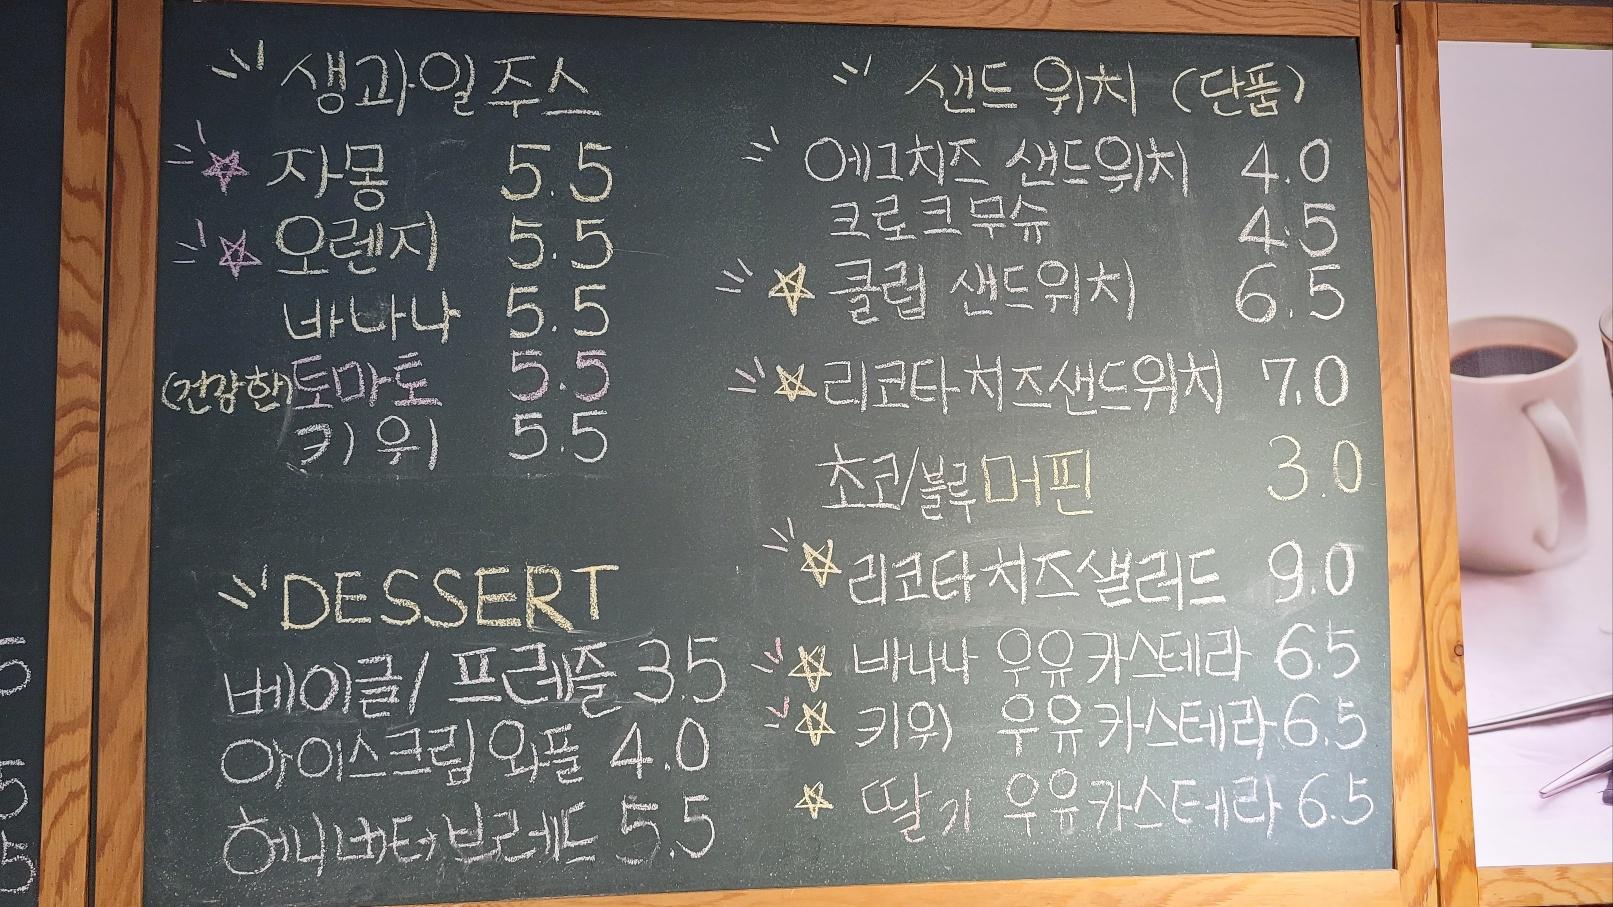 생과일주스
자몽 5.5
오렌지 5.5
바나나 5.5
(건강한)토마토 5.5
키위 5.5
DESSERT
베이글/프레즐 3.5
아이스크림 와플 4.0
허니버터브레드 5.5
샌드위치 (단품)
에그치즈 샌드위치 4.0
크로크무슈 4.5
클럽 샌드위치 6.5
리코타치즈샌드위치 7.0
초코/블루머핀 3.0
리코타치즈샐러드 9.0
바나나 우유카스테라 6.5
키위 우유카스테라 6.5
딸기 우유카스테라 6.5